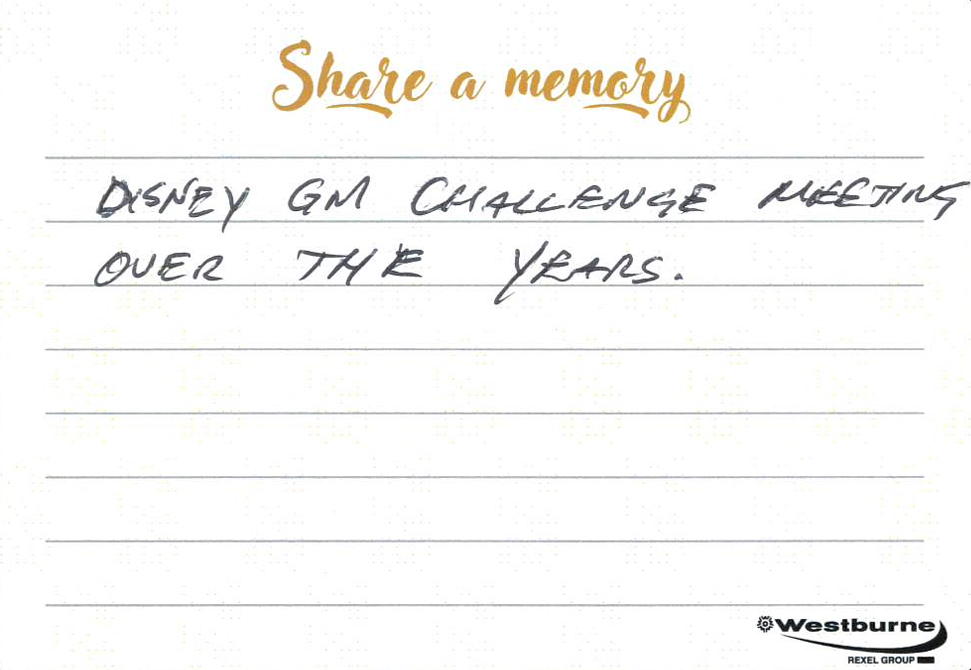 Share a memory
DISNEY GM CHALLENGE MEETING
OVER THE YEARS.
Westburne
REXEL GROUP